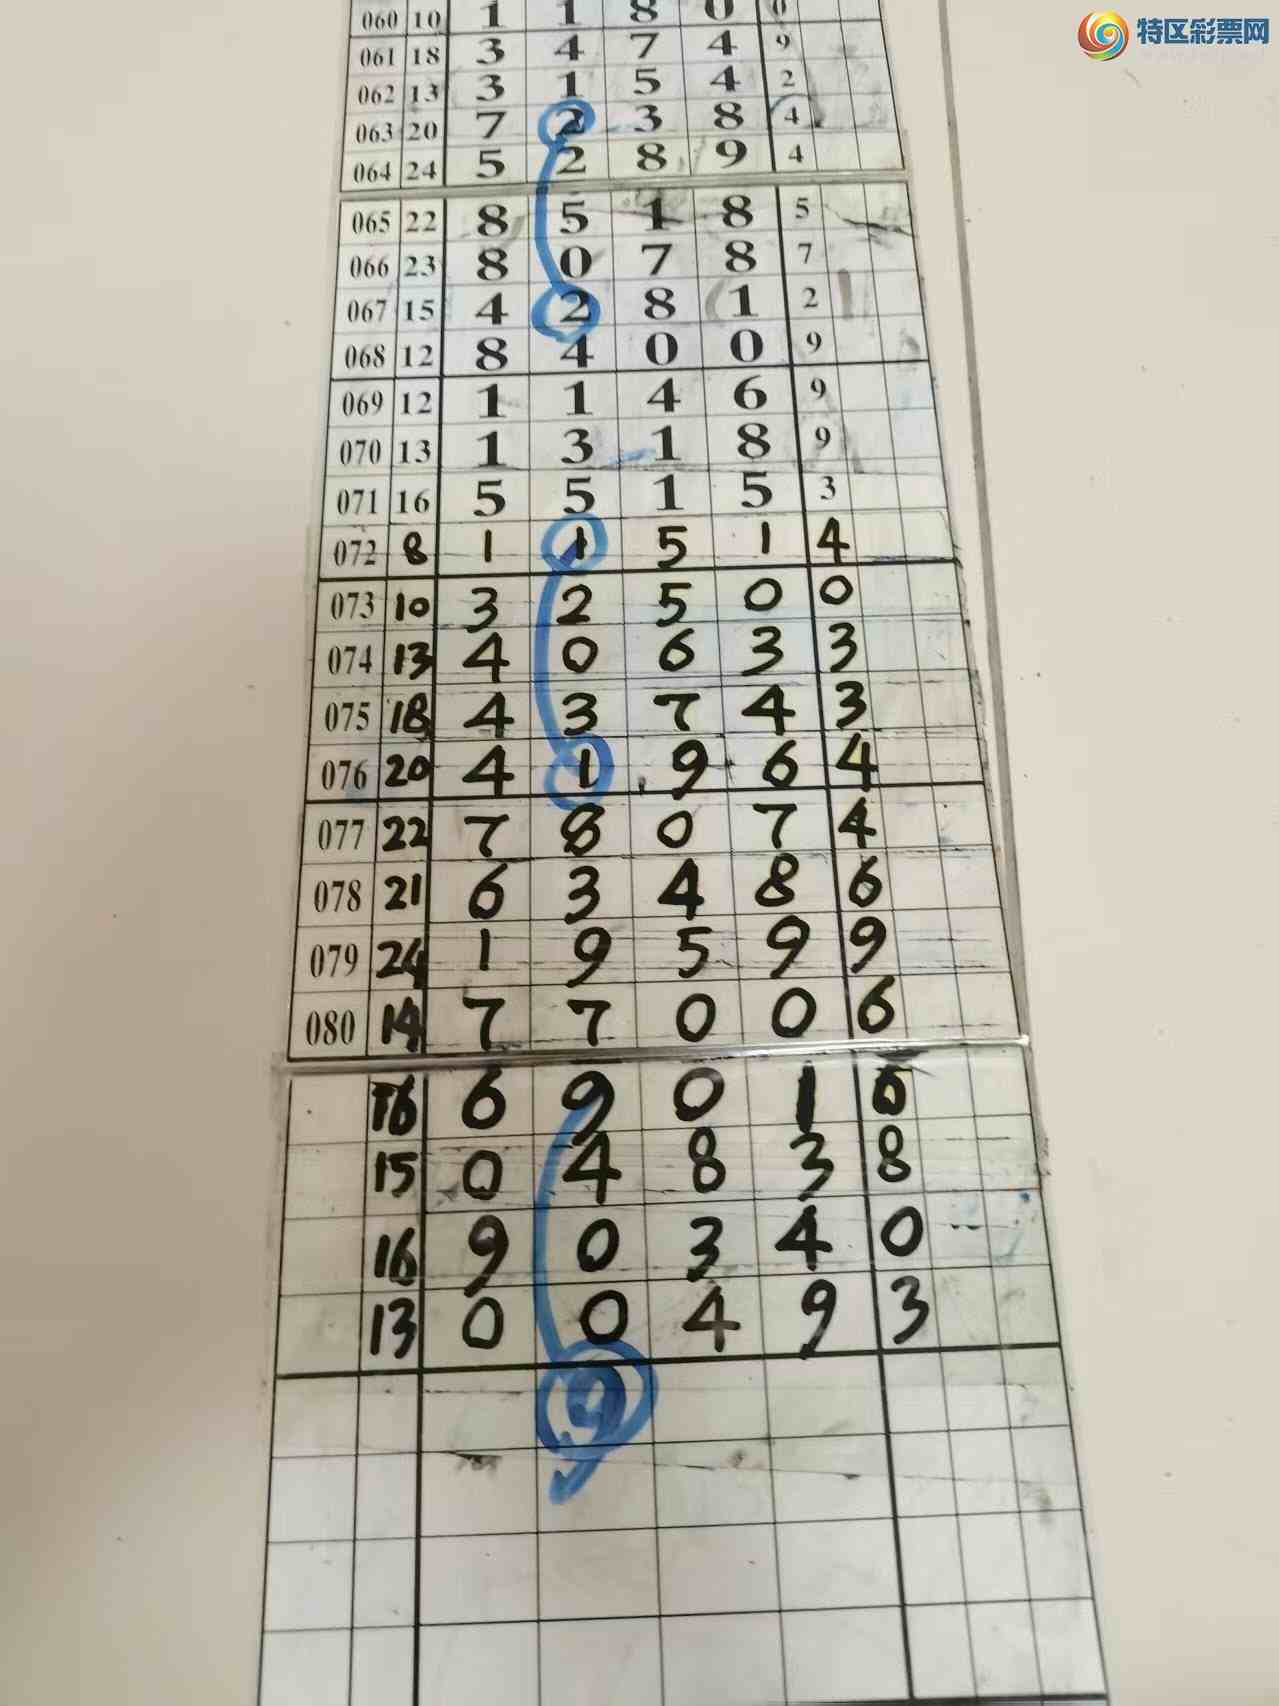 特区彩票网
060 10 1 1 8 0 0
061 18 3 4 7 4 9
062 13 3 1 5 4 2
063 20 7 2 3 8 4
064 24 5 2 8 9 4
065 22 8 5 1 8 5
066 23 8 0 7 8 7
067 15 4 2 8 1 2
068 12 8 4 0 0 9
069 12 1 1 4 6 9
070 13 1 3 1 8 9
071 16 5 5 1 5 3
072 8 1 1 5 1 4
073 10 3 2 5 0 0
074 13 4 0 6 3 3
075 18 4 3 7 4 3
076 20 4 1 9 6 4
077 22 7 8 0 7 4
078 21 6 3 4 8 6
079 24 1 9 5 9 9
080 14 7 7 0 0 6
16 6 9 0 1
15 0 4 8 3 8
16 9 0 3 4 0
13 0 0 4 9 3
9